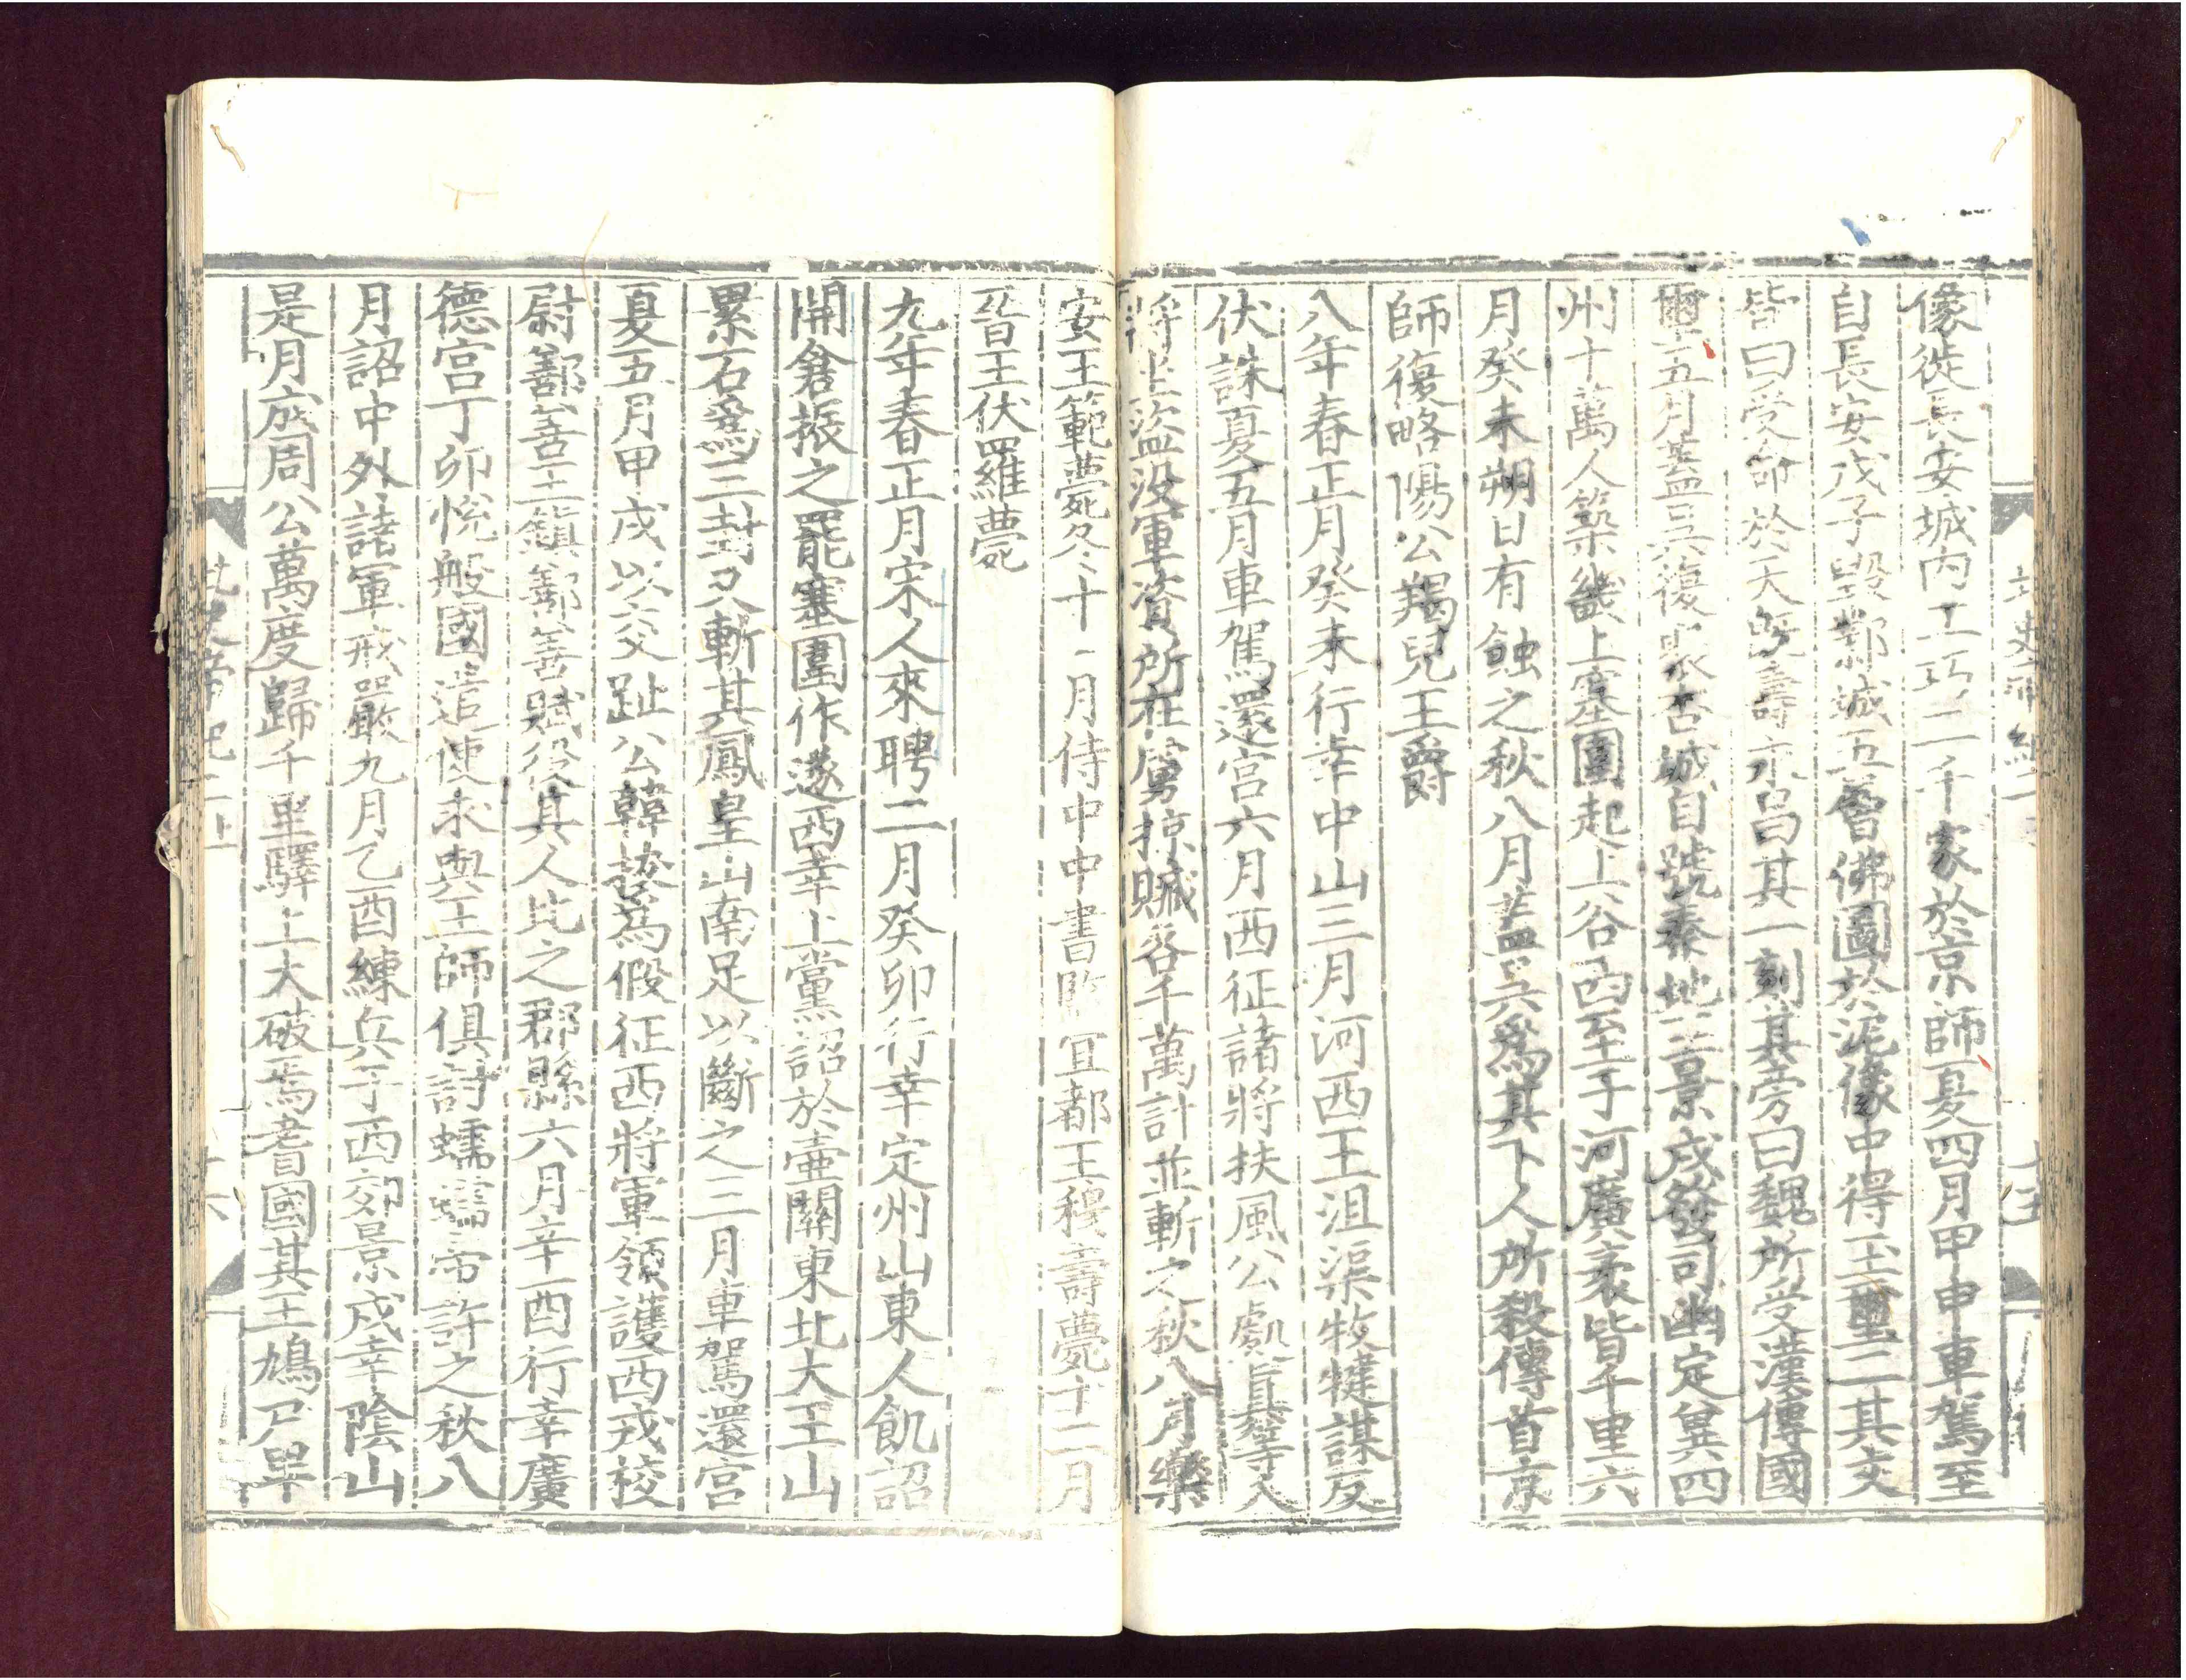 像徙長安城內工巧二千家於京師夏四月甲申車駕至
自長安戊子毀鄴城五層佛圖於泥像中得玉璽二其文
皆曰受命於天既壽永昌其一刻其旁曰魏所受漢傳國
璽五月蓋吳復聚杏城自號秦地王景戌發司幽定冀四
州十萬人築畿上塞圍起上谷西至于河廣袤皆千里六
月癸未朔日有蝕之秋八月蓋吳爲其下人所殺傳首京
師復略陽公羯兒王爵
八年春正月癸未行幸中山三月河西王沮渠牧犍謀反
伏誅夏五月車駕還宮六月西征諸將扶風公處眞等八
將坐盜沒軍資所在虜掠贓各千萬計並斬之秋八月樂
安王範薨冬十一月侍中中書監宜都王穆壽薨十二月
晉王伏羅薨
九年春正月宋人來聘二月癸卯行幸定州山東人飢詔
開倉振之罷塞圍作遂西幸上黨詔於壺關東北大王山
累石爲三封又斬其鳳皇山南足以斷之三月車駕還宮
夏五月甲戌以交趾公韓拔爲假征西將軍領護西戎校
尉鄯善王鎮鄯善賦役其人比之郡縣六月辛酉行幸廣
德宮丁卯悅般國遣使求與王師俱討蠕蠕帝許之秋八
月詔中外諸軍戒嚴九月乙酉練兵于西郊景戌幸陰山
是月成周公萬度歸千里驛上大破焉耆國其王鳩尸畢
北史帝紀二上
十六